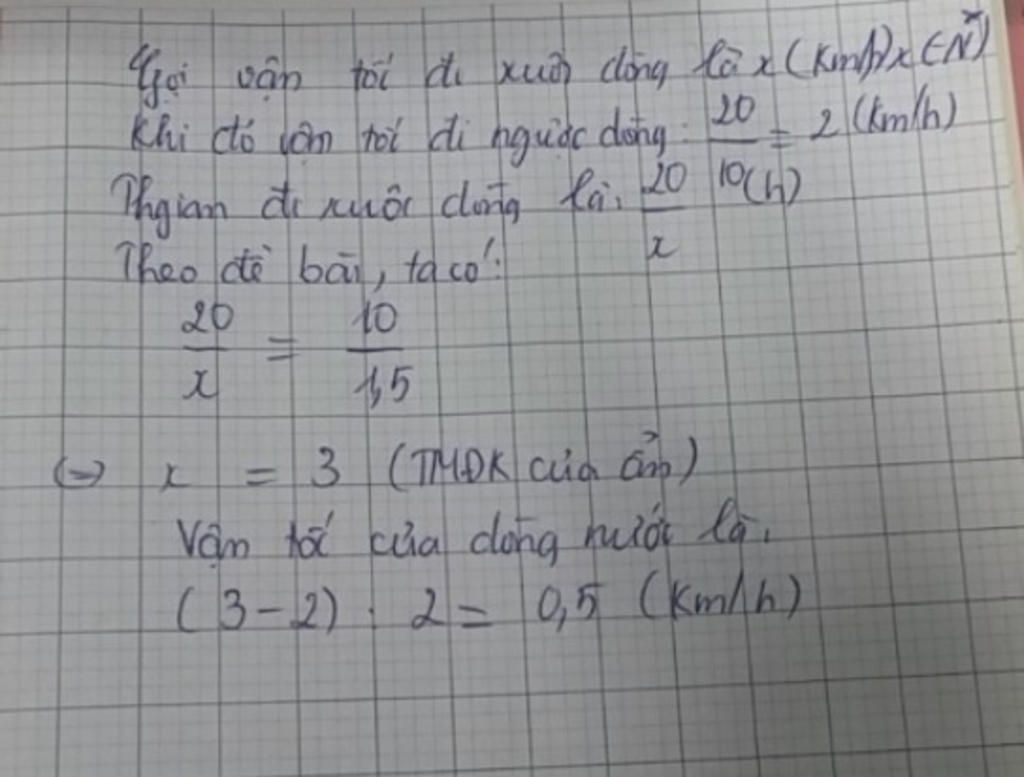 Gọi vận tốc đi xuôi dòng là x (km/h) x ∈ N*)
Khi đó vận tốc đi ngược dòng: 20/10(h) = 2 (km/h)
Thgian đi xuôi dòng là: 20/x
Theo đề bài, ta có:
20/x = 10/1,5
(=) x = 3 (TMĐK của ẩn)
Vận tốc của dòng nước là:
(3-2) : 2 = 0,5 (km/h)